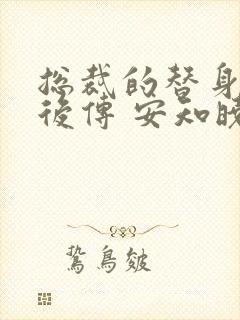 总裁的替身
後傳 安知晓
鷙鳥皴